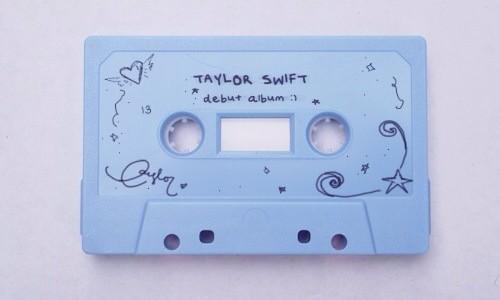 TAYLOR SWIFT
debut album :)
13
Taylor